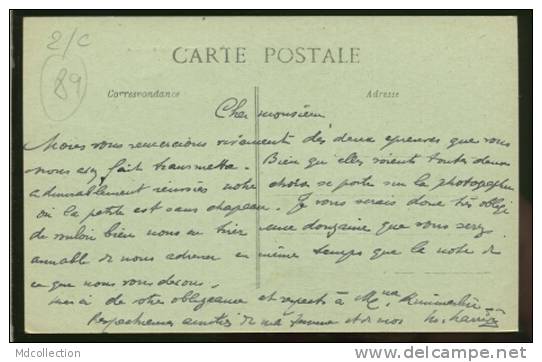 2/C
89
CARTE POSTALE
Correspondance
Adresse
Cher monsieur
Nous vous remercions vivement des deux épreuves que vous
nous avez fait transmettre. Bien qu'elles soient toutes deux
admirablement réussies notre choix se porte sur la photographie
où la petite est sans chapeau. Je vous serais donc très obligé
de vouloir bien nous en tirer une douzaine que vous serez
aimable de nous adresser en même temps que la note de
ce que nous vous devons.
merci de votre obligeance et respects à Mme
Respectueuses amitiés de ma femme et de moi
MDcollection
http://www.delcampe.net